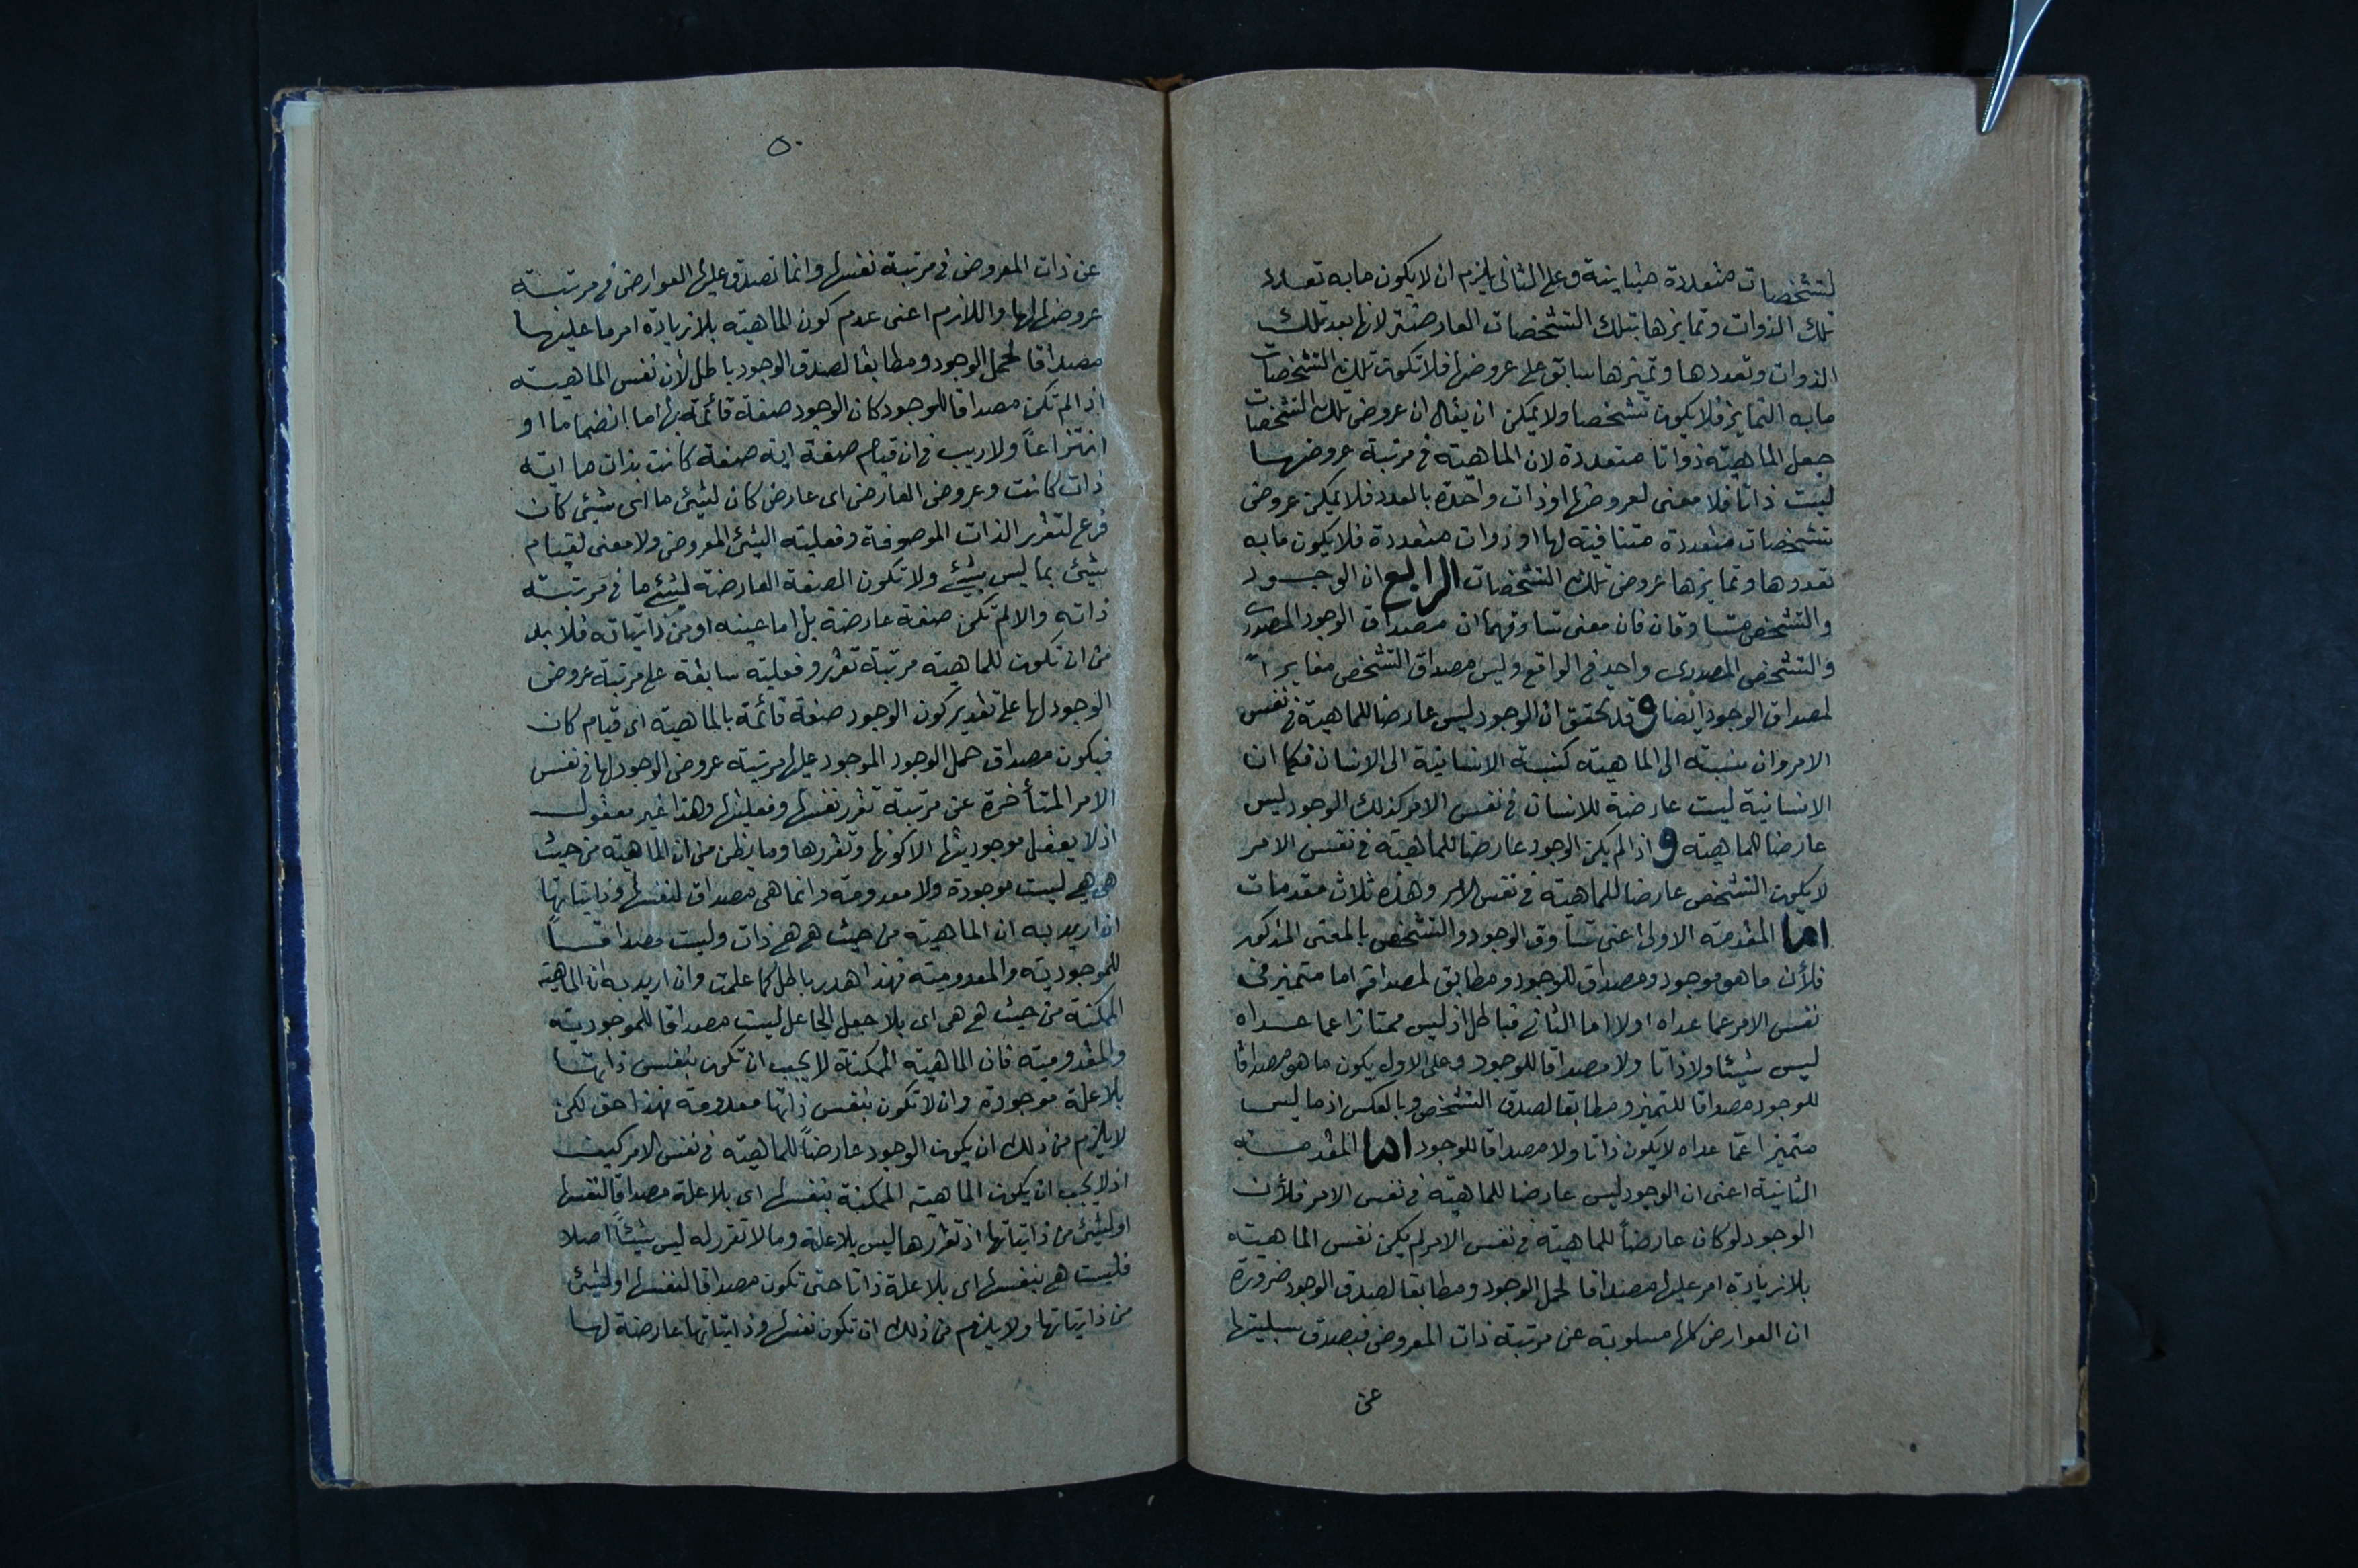 لتشخصات متعددة متباينة وعلى الثانى يلزم ان لا يكون ما به تعدد
تلك الذوات وتمايزها بتلك التشخصات العارضة لانها بعد تلك
الذوات وتعددها وتميزها سابق على عروضها فلا تكون تلك التشخصات
ما به التمايز فلا يكون تشخصا ولا يمكن ان يقال ان عروض تلك التشخصات
جعل الماهية ذواتا متعددة لان الماهية فى مرتبة عروضها
ليست ذاتا فلا معنى لعروضها او ذات واحدة بالعدد فلا يمكن عروض
تشخصات متعددة متنافية لها او ذوات متعددة فلا يكون ما به
تعددها وتمايزها عروض تلك التشخصات الرابع ان الوجود
والتشخص متساوقان فان معنى تساوقهما ان مصداق الوجود المصدرى
والتشخص المصدرى واحد فى الواقع وليس مصداق التشخص مغايراً
لمصداق الوجود ايضا و قد تحقق ان الوجود ليس عارضا للماهية فى نفس
الامر وان نسبته الى الماهية كنسبة الانسانية الى الانسان فكما ان
الانسانية ليست عارضة للانسان فى نفس الامر كذلك الوجود ليس
عارضا للماهية و اذا لم يكن الوجود عارضا للماهية فى نفس الامر
لا يكون التشخص عارضا للماهية فى نفس الامر وهذه ثلاث مقدمات
اما المقدمة الاولى اعنى تساوق الوجود والتشخص بالمعنى المذكور
فلأن ما هو موجود ومصداق للوجود ومطابق لمصداقه اما متميز فى
نفس الامر عما عداه اولا اما الثانى فباطل اذ ليس ممتازا عما عداه
ليس شيئا ولا ذاتا ولا مصداقا للوجود وعلى الاول يكون ما هو مصداقا
للوجود مصداقا للتميز ومطابقا لصدق التشخص وبالعكس اذ ما ليس
متميزا عما عداه لا يكون ذاتا ولا مصداقا للوجود اما المقدمة
الثانية اعنى ان الوجود ليس عارضا للماهية فى نفس الامر فلأن
الوجود لو كان عارضاً للماهية فى نفس الامر لم يكن نفس الماهية
بلا زيادة امر عليها مصداقا لحمل الوجود ومطابقا لصدق الوجود ضرورة
ان العوارض كلها مسلوبة عن مرتبة ذات المعروض فيصدق سلبيتها
عن
٥٠
عن ذات المعروض فى مرتبة نفسها وانما تصدق عليها العوارض فى مرتبة
عروضها لها واللازم اعنى عدم كون الماهية بلا زيادة امر ما عليها
مصداقا لحمل الوجود ومطابقا لصدق الوجود باطل لأن نفس الماهية
اذا لم تكن مصداقا للوجود كان الوجود صفة قائمة بها اما انضماما او
انتزاعاً ولا ريب فى ان قيام صفة اية صفة كانت بذات ما اية
ذات كانت وعروض العارض اى عارض كان لشيئ ما اى شيئ كان
فرع لتقرر الذات الموصوفة وفعلية الشيئ المعروض ولا معنى لقيام
شيئ بما ليس بشيئ ولا تكون الصفة العارضة لشيئ ما فى مرتبة
ذاته والا لم تكن صفة عارضة بل اما عينه او من ذاتياته فلا بد
من ان تكون للماهية مرتبة تقرر وفعلية سابقة على مرتبة عروض
الوجود لها على تقدير كون الوجود صفة قائمة بالماهية اى قيام كان
فيكون مصداق حمل الوجود الموجود عليها مرتبة عروض الوجود لها فى نفس
الامر المتأخرة عن مرتبة تقرر نفسها وفعليتها وهذا غير معقول
اذ لا يعقل موجوديتها الا كونها وتقررها وما يظن من ان الماهية من حيث
هى هى ليست موجودة ولا معدومة وانما هى مصداق لنفسها وذاتياتها
ان اريد به ان الماهية من حيث هى هى ذات وليست مصداقاً
للموجودية والمعدومية فهذا هدر باطل كما علمت وان اريد به ان الماهية
الممكنة من حيث هى هى اى بلا جعل الجاعل ليست مصداقا للموجودية
والمعدومية فان الماهية الممكنة لا يجب ان تكون بنفس ذاتها
بلا علة موجودة وان لا تكون بنفس ذاتها معدومة فهذا حق لكن
لا يلزم من ذلك ان يكون الوجود عارضاً للماهية فى نفس الامر كيف
اذ لا يجب ان يكون الماهية الممكنة بنفسها اى بلا علة مصداقا لنفسها
او لشيئ من ذاتياتها اذ تقررها ليس بلا علة وما لا تقرر له ليس شيئاً اصلا
فليست هى بنفسها اى بلا علة ذاتا حتى تكون مصداقا لنفسها او لشيئ
من ذاتياتها ولا يلزم من ذلك ان تكون نفسها وذاتياتها عارضة لها